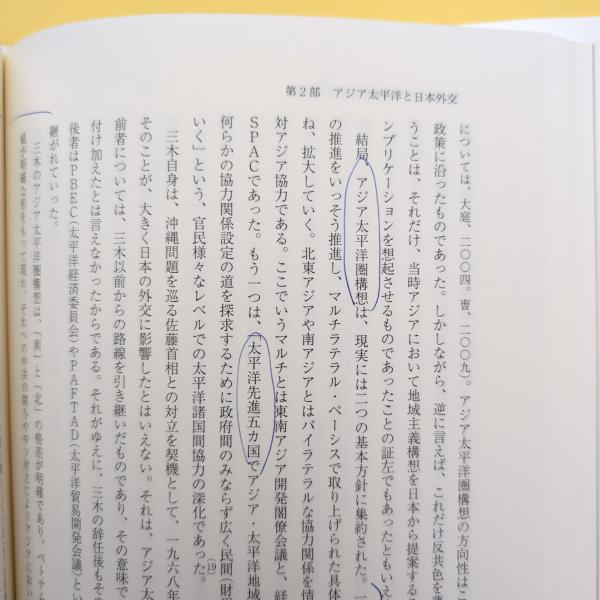 第2部　アジア太平洋と日本外交
については、大庭、二〇〇四。曺、二〇〇九）。アジア太平洋圏構想の方向性はこ
政策に沿ったものであった。しかしながら、逆に言えば、これだけ反共色を
うことは、それだけ、当時アジアにおいて地域主義構想を日本から提案するこ
ンプリケーションを想起させるものであったことの証左でもあったともいえ
結局、アジア太平洋圏構想は、現実には二つの基本方針に集約された。一
の推進をいっそう推進し、マルチラテラル・ベーシスで取り上げられた具体
ね、拡大していく。北東アジアや南アジアとはバイラテラルな協力関係を
対アジア協力である。ここでいうマルチとは東南アジア開発閣僚会議と、経
SPACであった。もう一つは、「太平洋先進五カ国でアジア・太平洋地域
何らかの協力関係設定の道を探求するために政府間のみならず広く民間（財
いく」という、官民様々なレベルでの太平洋諸国間協力の深化であった。(19)
三木自身は、沖縄問題を巡る佐藤首相との対立を契機として、一九六八年
そのことが、大きく日本の外交に影響したとはいえない。それは、アジア太
前者については、三木以前からの路線を引き継いだものであり、その意味で
付け加えたとは言えなかったからである。それがゆえに、三木の辞任後もそ
後者はPBEC（太平洋経済委員会）やPAFTAD（太平洋貿易開発会議）とい
継がれていった。
三木のアジア太平洋圏構想は、「南」と「北」の格差が明確であり、ベトナム